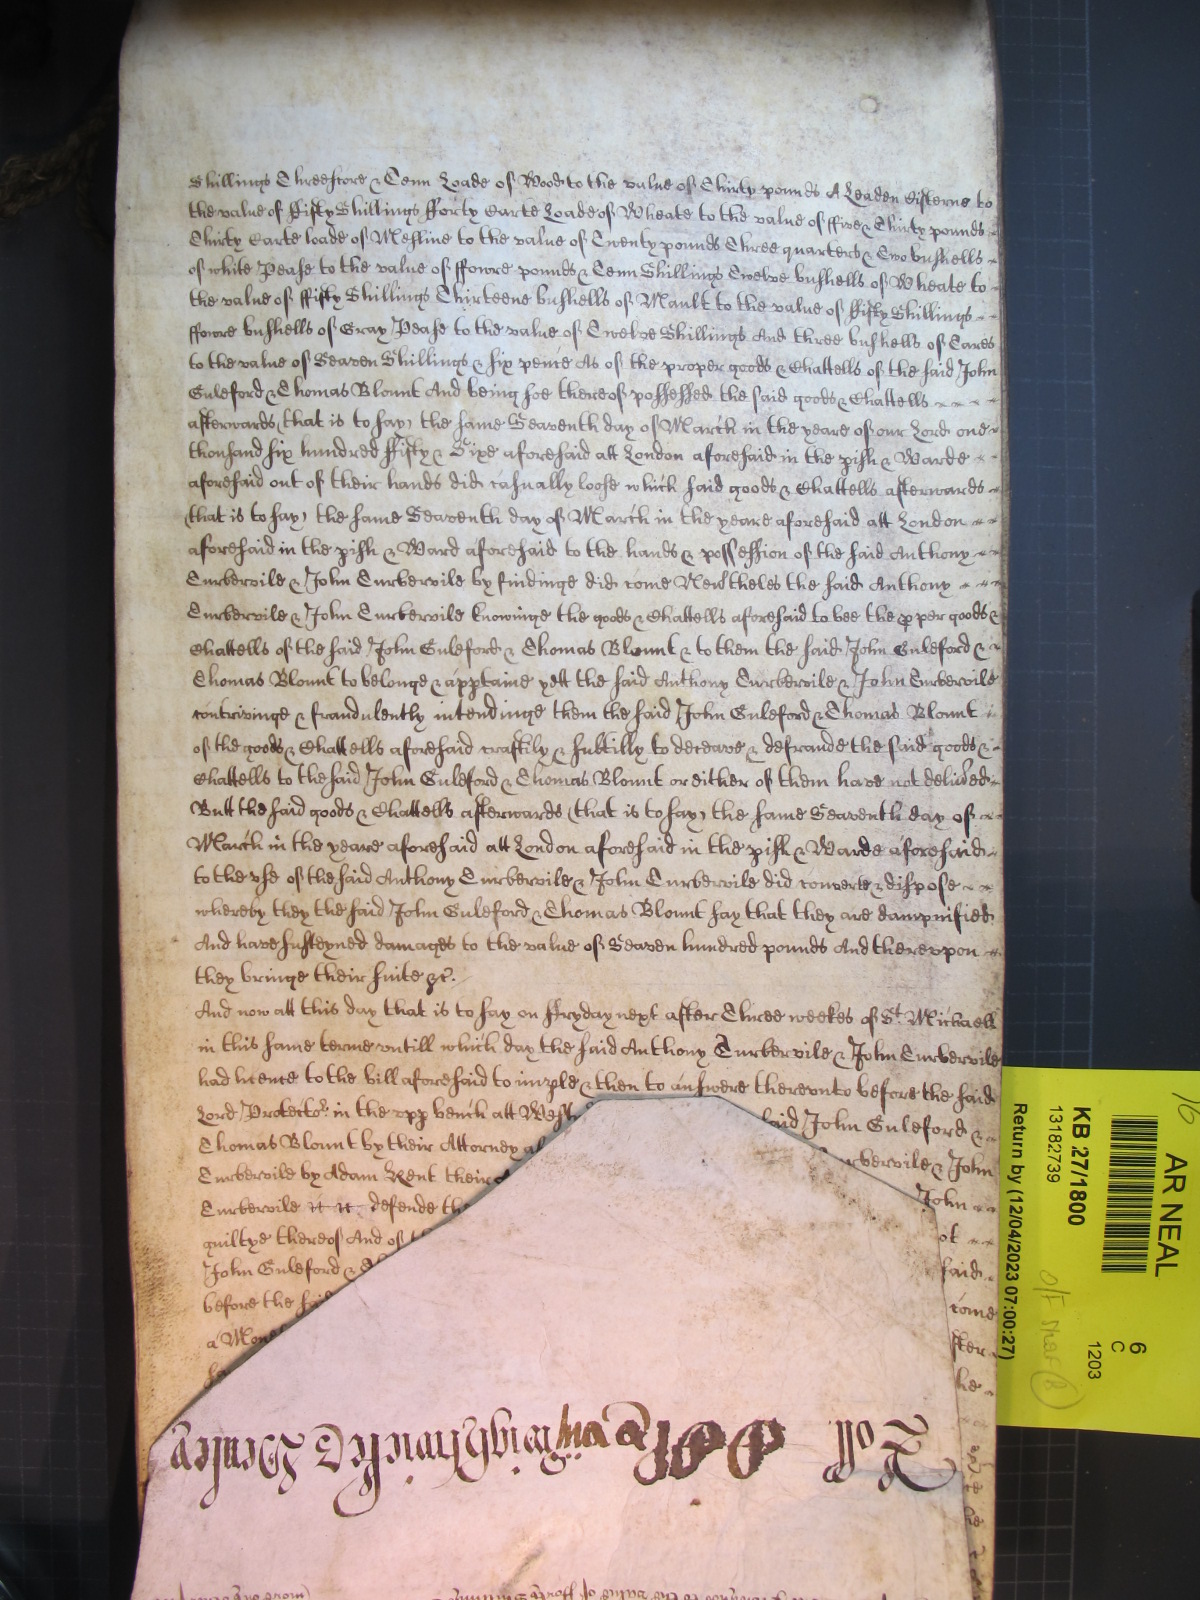 Shillings Threescore & Tenn Loade of Wood to the value of Thirty pounds A Leaden Cisterne to
the value of ffifty Shillings fforty Carte Loade of Wheate to the value of ffive & Thirty pounds
Thirty Carte loade of Mesline to the value of Twenty pounds Three quarters & Two bushells
of white Pease to the value of ffowre pounds & Tenn Shillings Twelve bushells of Wheate to
the value of ffifty Shillings Thirteene bushells of Mault to the value of ffifty Shillings
ffowre bushells of Gray Pease to the value of Twelve Shillings And three bushells of Tares
to the value of Seaven Shillings & six pence As of the proper goods & Chattells of the said John
Guleford & Thomas Blount And being soe thereof possessed the said goods & Chattells
afterwards (that is to say) the same Seaventh day of March in the yeare of our Lord one
thousand six hundred ffifty & Sixe aforesaid att London aforesaid in the pish & Warde
aforesaid out of their hands did casually loose which said goods & Chattells afterwards
(that is to say) the same Seaventh day of March in the yeare aforesaid att London
aforesaid in the pish & Ward aforesaid to the hands & possession of the said Anthony
Turbervile & John Turbervile by findinge did come Nevtheles the said Anthony
Turbervile & John Turbervile knowinge the goods & Chattells aforesaid to bee the pper goods &
Chattells of the said John Guleford & Thomas Blount & to them the said John Guleford &
Thomas Blount to belonge & apptaine yett the said Anthony Turbervile & John Turbervile
contrivinge & fraudulently intendinge them the said John Guleford & Thomas Blount
of the goods & Chattells aforesaid craftily & subtilly to deceave & defraude the said goods &
Chattells to the said John Guleford & Thomas Blount or either of them have not delived
Butt the said goods & Chattells afterwards (that is to say) the same Seaventh day of
March in the yeare aforesaid att London aforesaid in the pish & Warde aforesaid
to the use of the said Anthony Turbervile & John Turbervile did converte & dispose
whereby they the said John Guleford & Thomas Blount say that they are dampnified
And have susteyned damages to the value of Seaven hundred pounds And thereupon
they bringe their suite &c.
And now att this day that is to say on ffryday next after Three weekes of St. Michaell
in this same terme untill which day the said Anthony Turbervile & John Turbervile
had licence to the bill aforesaid to imple & then to answere thereunto before the said
Lord Protector in the upp bench att Westm said John Guleford &
Thomas Blount by their Attorney Turbervile & John
Turbervile by Adam Kent their John
Turbervile defende th ot
guiltye thereof And of said
John Guleford & come
before the said fter
a Mon he
Roll
AR NEAL
KB 27/1800
13182739
Return by (12/04/2023 07:00:27)
6
C
1203